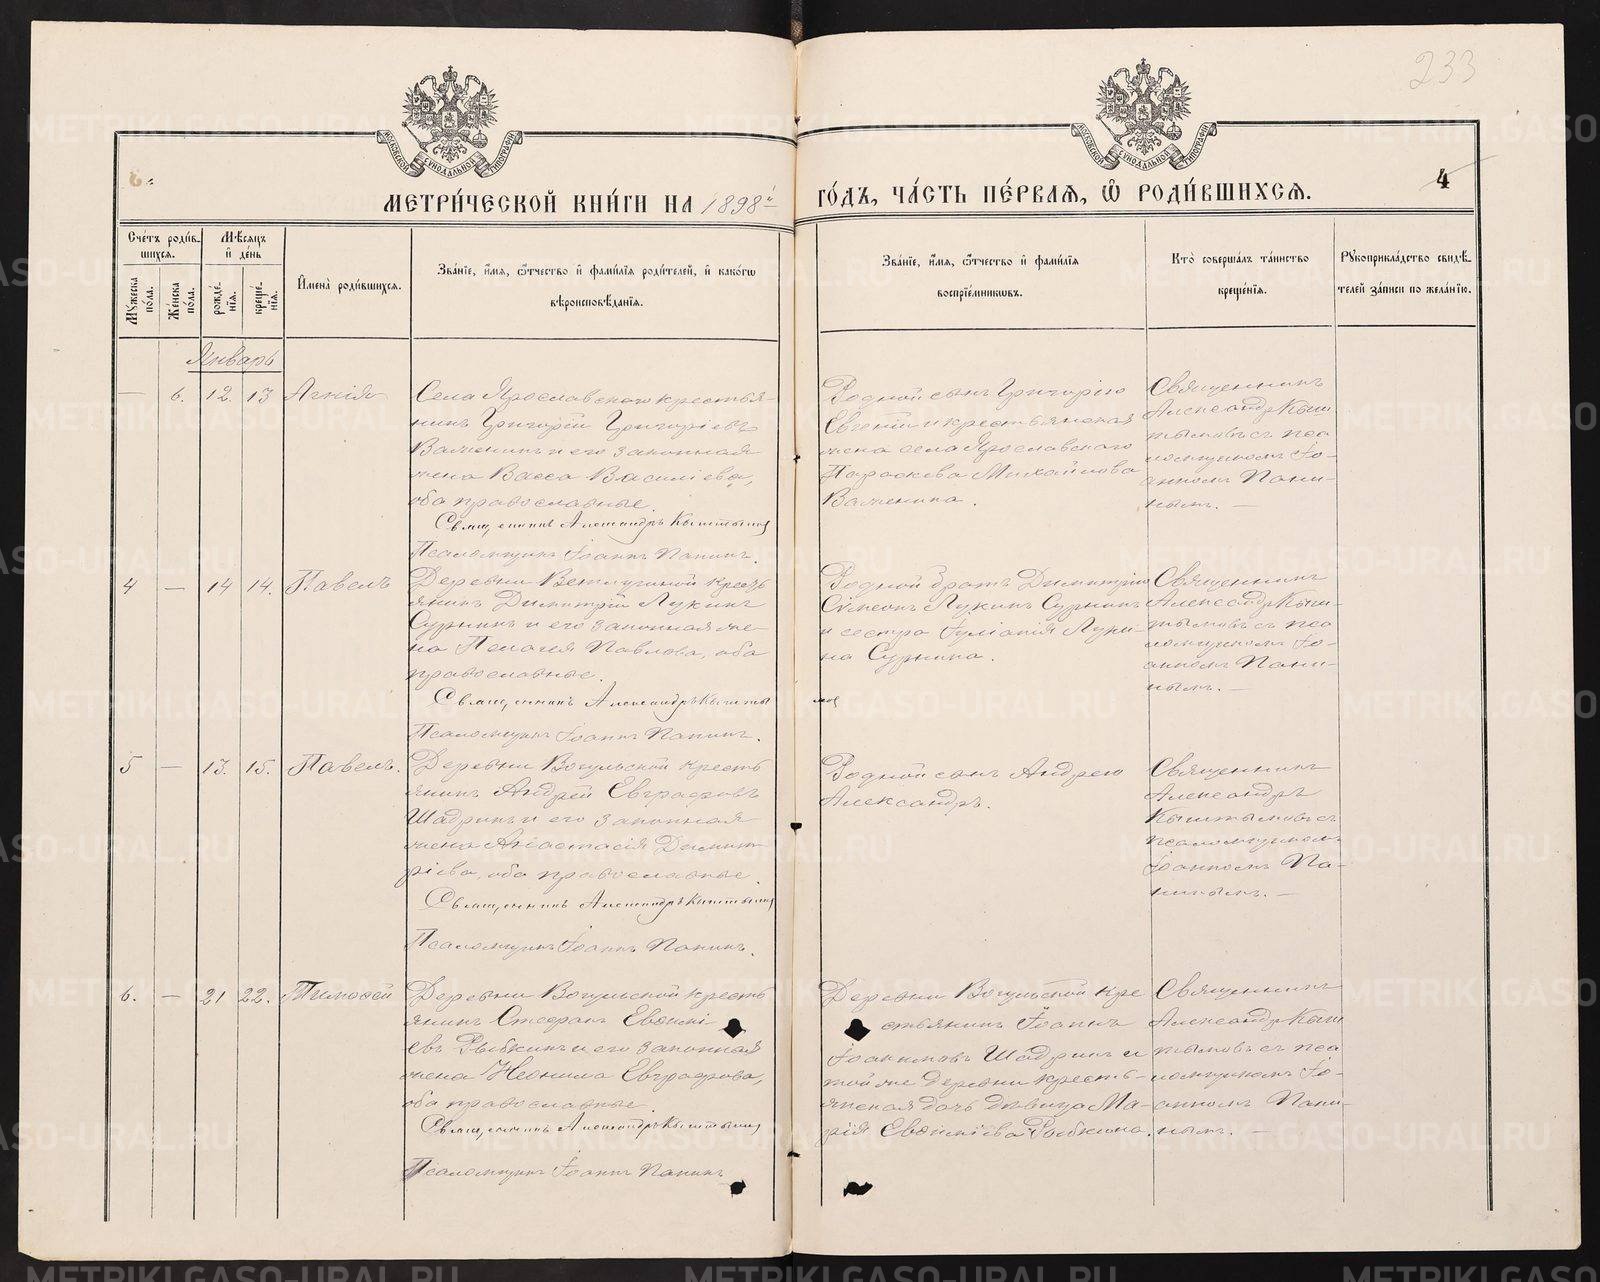 233
МОСКОВСКОЙ СѴНОДАЛЬНОЙ ТИПОГРАФІИ
МОСКОВСКОЙ СѴНОДАЛЬНОЙ ТИПОГРАФІИ
3
4
МЕТРИ́ЧЕСКОЙ КНИ́ГИ НА 1898й
ГО́ДЪ, ЧА́СТЬ ПЕ́РВАЯ, Ѽ РОДИ́ВШИХСЯ.
Сче́тъ роди́в-
шихся.
Мѣ́сяцъ
и҆ де́нь
Мꙋ́жеска по́ла.
Же́нска по́ла.
рожде́-
нїя.
креще́-
нїя.
И҆мена̀ роди́вшихся.
Зва́нїе, и҆́мя, ѻ҆́тчество и҆ фами́лїя роди́телей, и҆ како́гѡ
вѣроисповѣ́данїя.
Зва́нїе, и҆́мя, ѻ҆́тчество и҆ фами́лїя
воспрїе́мниковъ.
Кто̀ соверша́лъ та́инство
креще́нїя.
Рꙋкоприкла́дство свидѣ́-
телей за́писи по жела́нїю.
Январь
— 6. 12. 13 Агнія
Села Ярославскаго крестья-
нинъ Григорій Григоріевъ
Важенинъ и его законная
жена Васса Василіева,
оба православные.
Священникъ Александръ Кыштымовъ
Псаломщикъ Іоаннъ Панинъ.
Родной сынъ Григорію
Евгеній и крестьянская
жена села Ярославскаго
Параскева Михайлова
Важенина.
Священникъ
Александръ Кыш-
тымовъ съ пса
ломщикомъ Іо-
анномъ Пани-
нымъ. —
4 — 14 14. Павелъ
Деревни Ветлугиной кресть
янинъ Димитрій Лукинъ
Суринъ и его законная же-
на Пелагея Павлова, оба
православные.
Священникъ Александръ Кышты
мовъ
Псаломщикъ Іоаннъ Панинъ.
Родной братъ Димитрію
Сѵмеонъ Лукинъ Суринъ
и сестра Іуліанія Луки-
на Сурина.
Священникъ
Александръ Кыш-
тымовъ съ пса
ломщикомъ Іо-
анномъ Пани-
нымъ. —
5 — 13. 15. Павелъ.
Деревни Вогульской кресть
янинъ Андрей Евграфовъ
Шадринъ и его законная
жена Анастасія Димит
ріева, оба православные.
Священникъ Александръ Кыштымов
Псаломщикъ Іоаннъ Панинъ.
Родной сынъ Андрею
Александръ.
Священникъ
Александръ
Кыштымовъ съ
псаломщикомъ
Іоанномъ Па-
нинымъ. —
6. — 21 22. Тимоѳей
Деревни Вогульской кресть
янинъ Стефанъ Евѳимі
евъ Рыбкинъ и его законная
жена Неонила Евграфова,
оба православные.
Священникъ Александръ Кыштымов
Псаломщикъ Іоаннъ Панинъ.
Деревни Вогульской кре
стьянинъ Іоаннъ
Іоакимовъ Шадринъ и
той же деревни кресть-
янская дочь дѣвица Ма-
рія Евѳиміева Рыбкина.
Священникъ
Александръ Кыш
тымовъ съ пса
ломщикомъ Іо-
анномъ Пани-
нымъ. —
METRIKI.GASO-URAL.RU